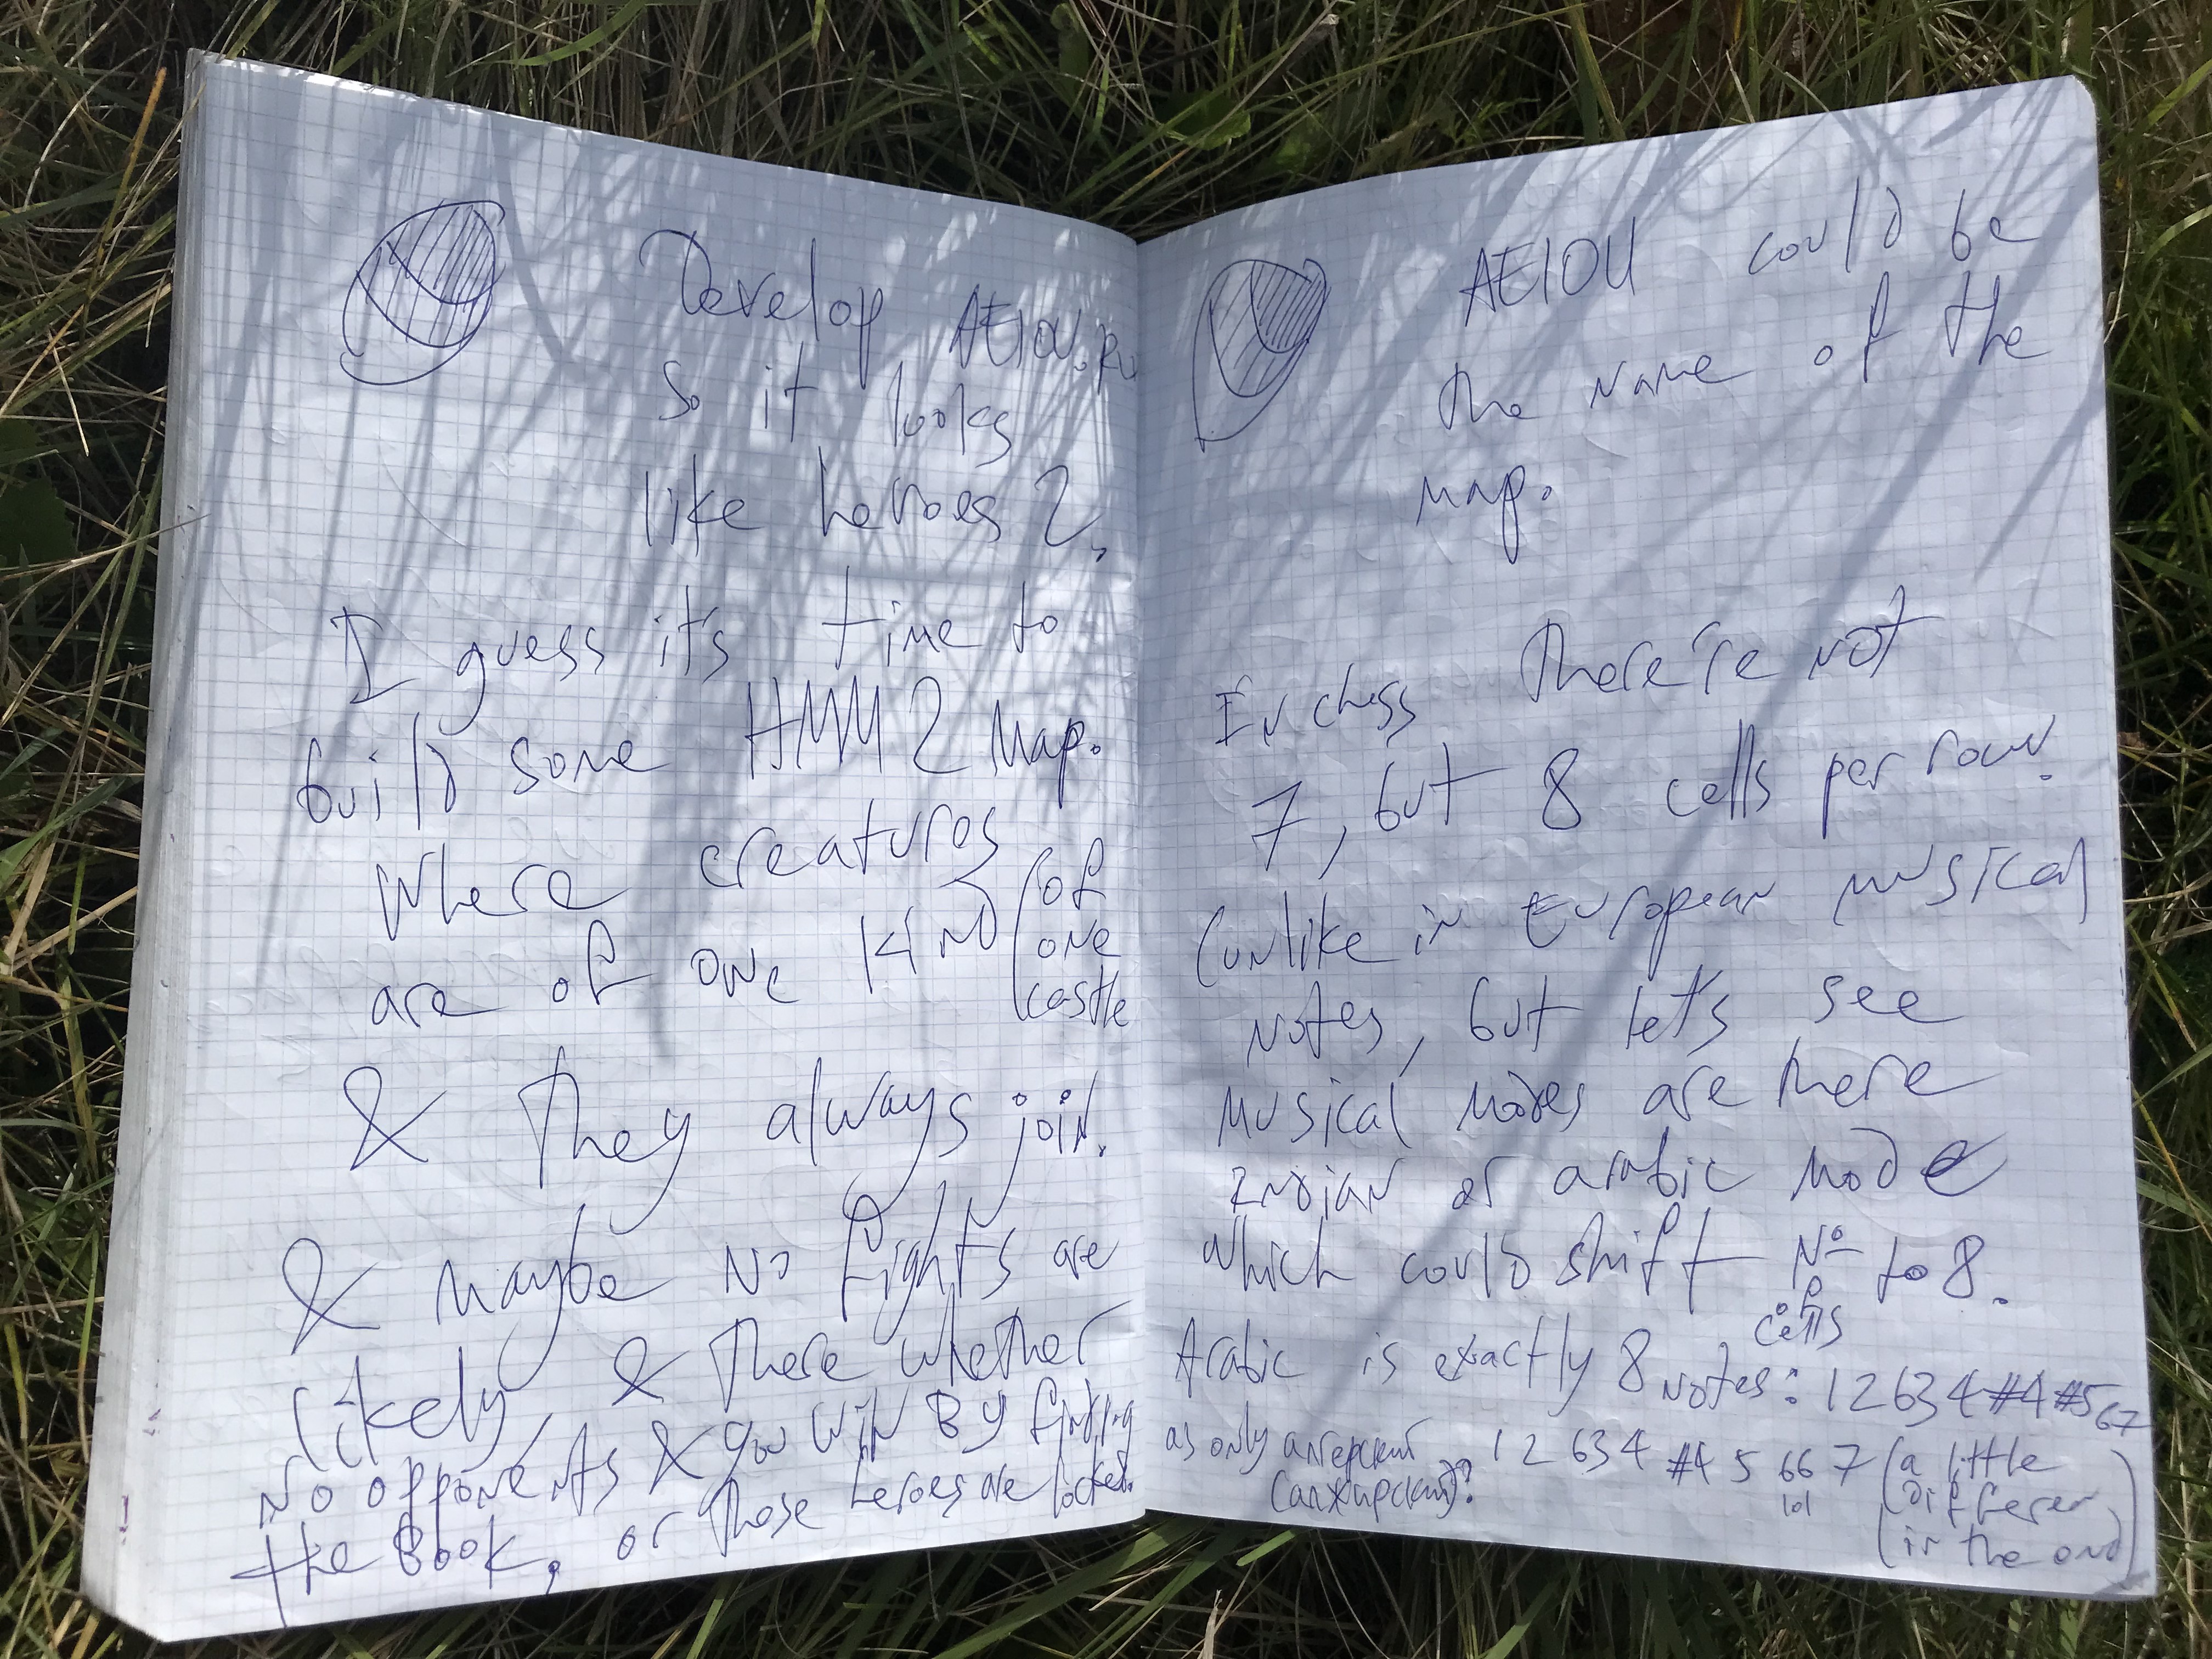 Develop AEIOU.PL
so it looks
like heroes 2,
I guess it's time to
build some HMM2 map.
Where creatures (of
are of one kind (one
castle
& They always join.
& maybe no fights are
likely & there whether
no opponents & you win by finding
the Book, or those heroes are
AEIOU could be
the name of the
map.
In chess there're not
7, but 8 cells per row.
(unlike in European musical
notes, but let's see
musical modes are here
Indian or arabic mode
which could shift № to 8.
of
cells
Arabic is exactly 8 notes: 1 2 b3 4 #4 #5 6 7
as only 1 2 b3 4 #4 5 b6 7 (a little
lol (different
(in the end)